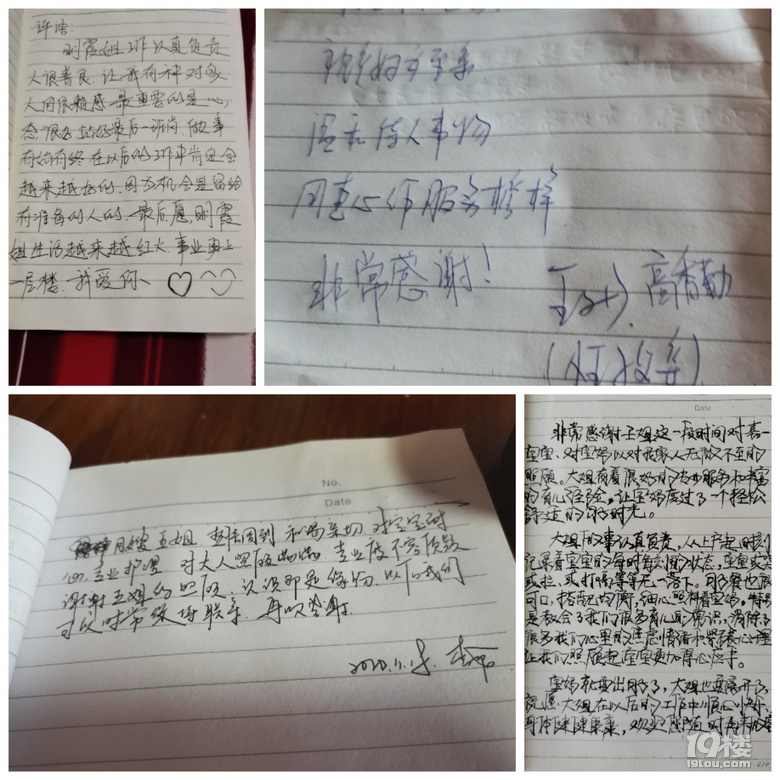 评语:
明霞姐工作认真负责
人很善良.让我有种对家
人同很亲感.最重要的是心
态很好.站好最后一班岗.做事
有始有终.在以后的工作中肯定会
越来越好的.因为机会是留给
有准备的人的.最后愿.明霞
姐生活越来越红火.事业更上
一层楼.我爱你、
温和待人事物
用真心作服务榜样
非常感谢!
高香勤
No.
Date
月嫂 王姐 和蔼亲切 对宝宝耐
心 专业护理 对大人照顾 专业度不容质疑
谢谢王姐的照顾 认识即是缘份 以后我们
可以时常 联系 再次感谢
Date
非常感谢王姐这一段时间对喜
宝宝、对宝妈以对我家人无微不至的
照顾。大姐有着很好的专业服务和丰富
的育儿经验,让宝妈度过了一个轻松
舒适的月子时光。
大姐做事认真负责,从上户起时刻
记录着宝宝的每时每刻的状态,宝宝或吃
或拉,或打嗝等等无一落下。月子餐也很
可口,搭配均衡,细心照料着宝妈,特别
是教会了我们很多育儿的常识,消除了
很多我们心里的焦虑情绪和紧张心理
让我们照顾起宝宝更加得心应手。
宝妈就要出月子了,大姐也要离开了,
祝愿大姐在以后的工作中顺心顺利,
身体健健康康,欢迎随时再来
19楼
19lou.com